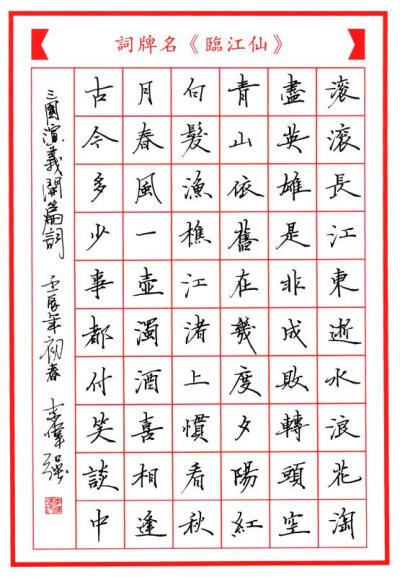 詞牌名《臨江仙》
滚滚長江東逝水浪花淘
盡英雄是非成敗轉頭空
青山依舊在幾度夕陽紅
白髮漁樵江渚上慣看秋
月春風一壺濁酒喜相逢
古今多少事都付笑談中
三國演義開篇詞 壬辰年初春 李偉强